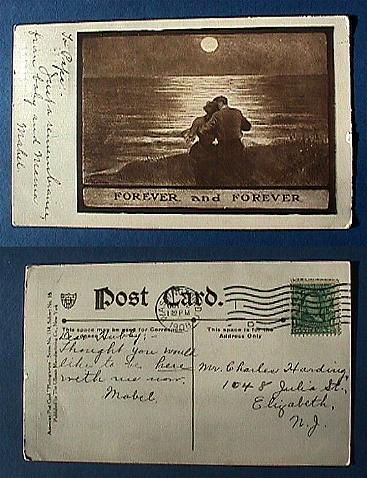 To Papa:
Just a remembrance
from Baby and Mama
Mabel
FOREVER and FOREVER
Post Card.
This space may be used for Correspondence
This space is for the
Address Only
12 PM
1908
Dear Hubby:
Thought you would
like to be here
with me now.
Mabel.
Mr. Charles Harding,
1048 Julia St.,
Elizabeth,
N. J.